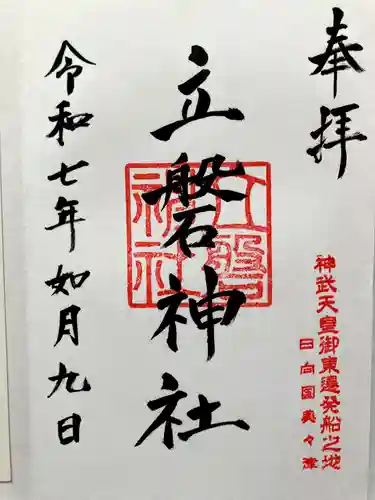 奉拝
神武天皇御東遷発船之地
日向国美々津
立磐神社
立磐神社
令和七年如月九日